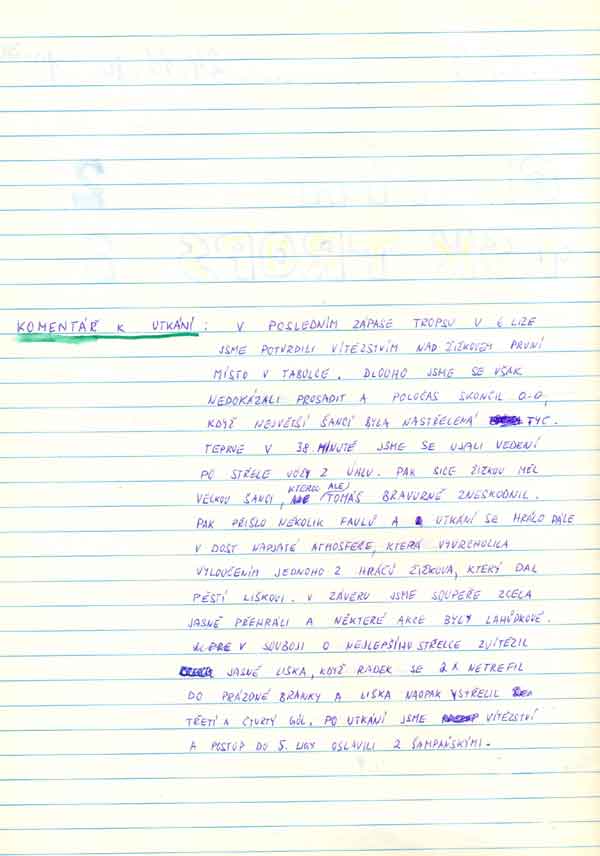 KOMENTÁŘ K UTKÁNÍ: V POSLEDNÍM ZÁPASE TROPSU V 6 LIZE
JSME POTVRDILI VÍTĚZSTVÍM NAD ŽIŽKOVEM PRVNÍ
MÍSTO V TABULCE. DLOUHO JSME SE VŠAK
NEDOKÁZALI PROSADIT A POLOČAS SKONČIL 0-0,
KDYŽ NEJVĚTŠÍ ŠANCÍ BYLA NASTŘELENÁ TYČ.
TEPRVE V 38 MINUTĚ JSME SE UJALI VEDENÍ
PO STŘELE VOZY Z ÚHLU. PAK SICE ŽIŽKOV MĚL
VELKOU ŠANCI, KTEROU ALE TOMÁŠ BRAVURNĚ ZNEŠKODNIL.
PAK PŘIŠLO NĚKOLIK FAULŮ A UTKÁNÍ SE HRÁLO DÁLE
V DOST NAPJATÉ ATMOSFÉŘE, KTERÁ VYVRCHOLILA
VYLOUČENÍM JEDNOHO Z HRÁČŮ ŽIŽKOVA, KTERÝ DAL
PĚSTÍ LIŠKOVI. V ZÁVĚRU JSME SOUPEŘE ZCELA
JASNĚ PŘEHRÁLI A NĚKTERÉ AKCE BYLY LAHŮDKOVÉ.
V SOUBOJI O NEJLEPŠÍHO STŘELCE ZVÍTĚZIL
JASNĚ LIŠKA, KDYŽ RADEK SE 2X NETREFIL
DO PRÁZDNÉ BRANKY A LIŠKA NAOPAK VSTŘELIL
TŘETÍ A ČTVRTÝ GÓL. PO UTKÁNÍ JSME VÍTĚZSTVÍ
A POSTUP DO 5. LIGY OSLAVILI 2 ŠAMPAŇSKÝMI.